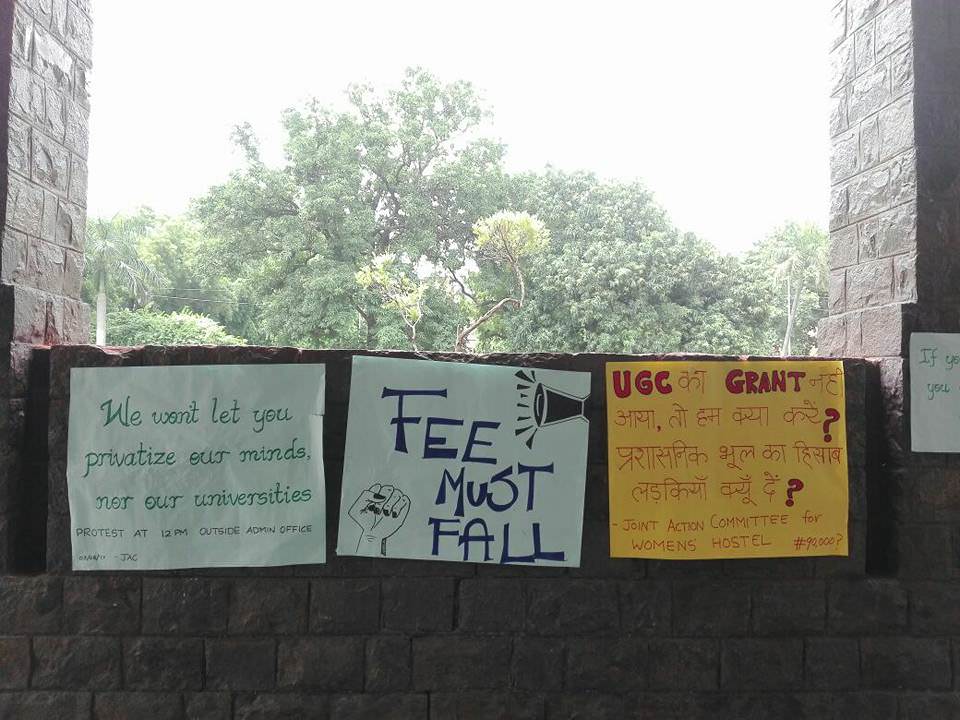 We wont let you
privatize our minds,
nor our universities
PROTEST AT 12 PM OUTSIDE ADMIN OFFICE
- JAC
FEE
MUST
FALL
UGC का GRANT नही
आया, तो हम क्या करें?
प्रशासनिक भूल का हिसाब
लड़कियाँ क्यूँ दें?
- JOINT ACTION COMMITTEE for
WOMENS' HOSTEL #92,000?
If
you